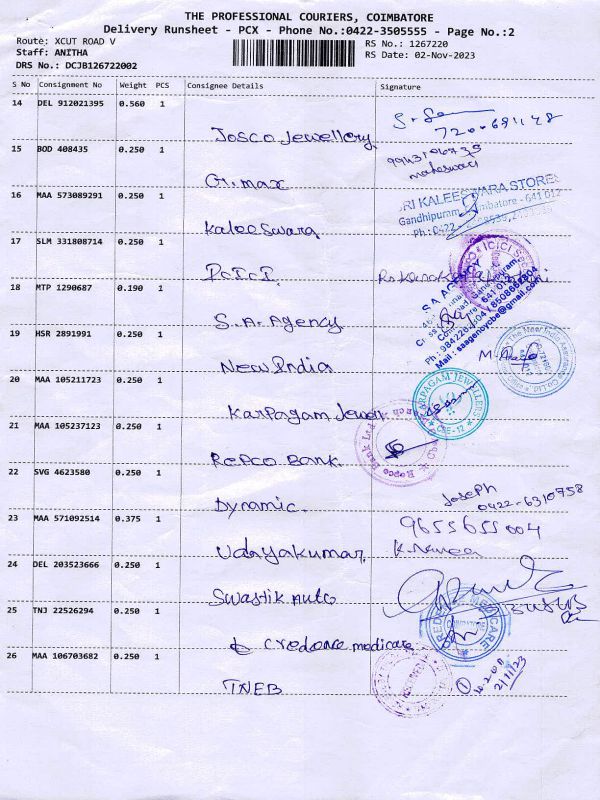 THE PROFESSIONAL COURIERS, COIMBATORE
Delivery Runsheet - PCX - Phone No.:0422-3505555 - Page No.:2
Route: XCUT ROAD V
RS No.: 1267220
Staff: ANITHA
RS Date: 02-Nov-2023
DRS No.: DCJB126722002
S No Consignment No Weight PCS Consignee Details Signature
14 DEL 912021395 0.560 1
Josco Jewellery
15 BOD 408435 0.250 1
maheswari
G.max
16 MAA 573089291 0.250 1
SRI KALEESWARA STORES
Gandhipuram, Coimbatore - 641 012
Kaleeswara
17 SLM 331808714 0.250 1
ICICI
18 MTP 1290687 0.190 1
S.A AGENCY
Mail : saagencycbe@gmail.com
S.A. Agency
19 HSR 2891991 0.250 1
The New India Assurance Co Ltd
New India
20 MAA 105211723 0.250 1
KARPAGAM JEWELLERS
CBE-12
Karpagam Jewel
21 MAA 105237123 0.250 1
Repco Bank Ltd
Repco Bank
22 SVG 4623580 0.250 1
Joseph
0422-6310758
Dynamic
23 MAA 571092514 0.375 1
9655655004
Udayakumar
24 DEL 203523666 0.250 1
Swastik Auto
25 TNJ 22526294 0.250 1
CREDENCE MEDICARE
COIMBATORE
Credence medicare
26 MAA 106703682 0.250 1
2/11/23
TNEB